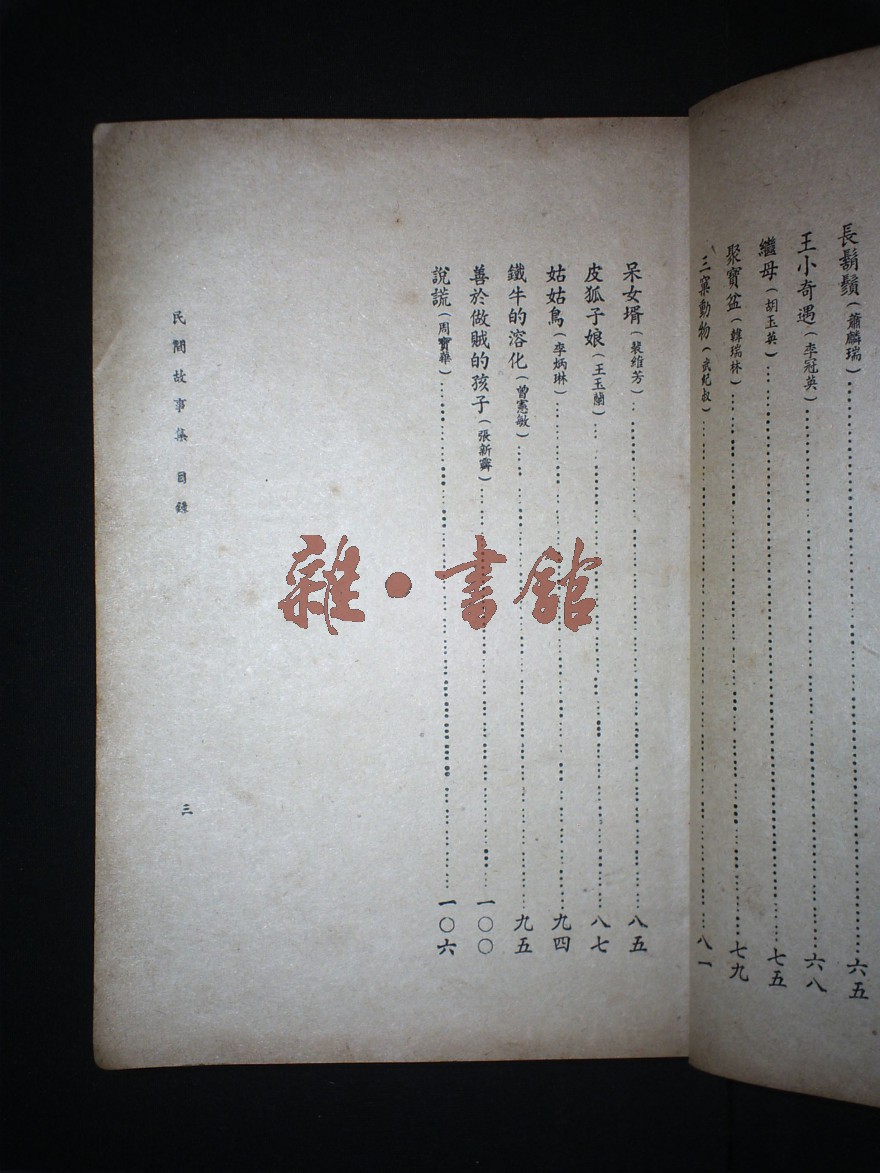 長鬍鬚(蕭麟瑞)……六五
王小奇遇(李冠英)……六八
繼母(胡玉英)……七五
聚寶盆(韓瑞林)……七九
三窠動物(武紀叔)……八一
呆女壻(裴維芳)……八五
皮狐子娘(王玉蘭)……八七
姑姑鳥(李炳琳)……九四
鐵牛的溶化(曾憲敏)……九五
善於做賊的孩子(張新霽)……一〇〇
說謊(周寶華)……一〇六
民間故事集 目錄
三
雜·書館